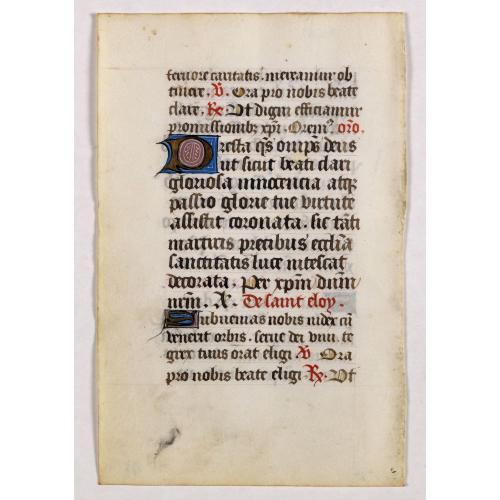 feruore caritatis. mereamur ob
tinere. V. Ora pro nobis beate
clare. Re Ut digni efficiamur
promissionibz xpi. Orem⁹. oro.
Presta qs omps deus
ut sicut beati clari
gloriosa innocencia atqz
passio glorie tue virtute
assistit coronata. sic tāti
martiris precibus ecclīa
sanctitatis luce nitescat
decorata. Per xpm dūm
nrm. A. De saint eloy.
Subuenias nobis
venerit orbis. serue dei viui. te
grex tuus orat eligi V Ora
pro nobis beate eligi Re. Ut